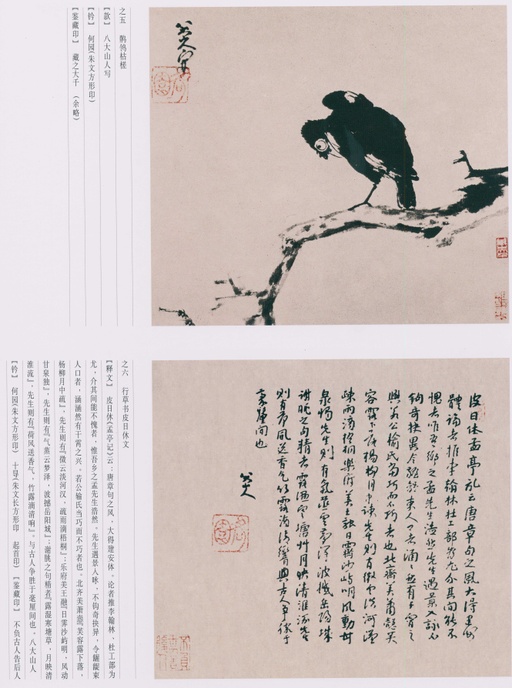 八大山人写
之五 枯槎
【款】 八大山人写
【钤】 何园（朱文方形印）
【鉴藏印】 藏之大千 （余略）
皮日休孟亭記云唐章句之風大得建安
體論者推李翰林杜工部為尤介其间能不
愧者惟吾鄉之孟先生浩然先生遇景入詠不
鈎奇抉異令齷齪束人口者涵涵然有干霄之
興若公输氏當巧而不巧者也北齊美蕭慤芙
容露下落楊柳月中疎先生則有微雲淡河漢
疎雨滴梧桐樂府美王融日霽沙嶼明風動甘
泉燭先生則有氣蒸雲夢澤波撼岳陽城
謝朓之句精者露濕寒塘草月映清淮流先生
則有荷風送香气竹露滴清響與古人争勝于
毫釐间也
八大山人
之六 行草书皮日休文
【释文】 皮日休《孟亭记》云：唐章句之风，大得建安体，论者推李翰林、杜工部为
尤，介其间能不愧者，惟吾乡之孟先生浩然。先生遇景入咏，不钩奇抉异，令龌龊束
人口者，涵涵然有干霄之兴，若公输氏当巧而不巧者也。北齐美萧悫，芙容露下落，
杨柳月中疏”，先生则有“微云淡河汉，疏雨滴梧桐”；乐府美王融“日霁沙屿明，风动
甘泉烛”，先生则有“气蒸云梦泽，波撼岳阳城”；谢朓之句精者“露湿寒塘草，月映清
淮流”，先生则有“荷风送香气，竹露滴清响”。与古人争胜于毫厘间也。八大山人
【钤】 何园（朱文方形印） （朱文长方形印 起首印） 【鉴藏印】 不负古人告后人